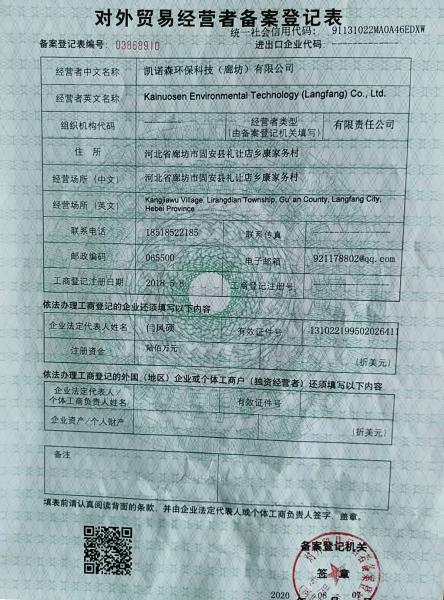 对外贸易经营者备案登记表
统一社会信用代码： 91131022MA0A46EDXW
备案登记表编号： 03868910 进出口企业代码：
经营者中文名称 凯诺森环保科技（廊坊）有限公司
经营者英文名称 Kainuosen Environmental Technology (Langfang) Co., Ltd.
组织机构代码 经营者类型 有限责任公司
（由备案登记机关填写）
住 所 河北省廊坊市固安县礼让店乡康家务村
经营场所（中文） 河北省廊坊市固安县礼让店乡康家务村
经营场所（英文） Kangjiawu Village, Lirangdian Township, Gu' an County, Langfang City,
Hebei Province
联系电话 18518522185 联系传真
邮政编码 065500 电子邮箱 921178802@qq.com
工商登记注册日期 2018-5-8 工商登记注册号
依法办理工商登记的企业还须填写以下内容
企业法定代表人姓名 闫风硕 有效证件号 131022199502026411
注册资金 陆佰万元 （折美元）
依法办理工商登记的外国（地区）企业或个体工商户（独资经营者）还须填写以下内容
企业法定代表人/
个体工商负责人姓名 有效证件号
企业资产/个人财产 （折美元）
备注
填表前请认真阅读背面的条款，并由企业法定代表人或个体工商负责人签字、盖章。
备案登记机关
签 章
2020 08 07